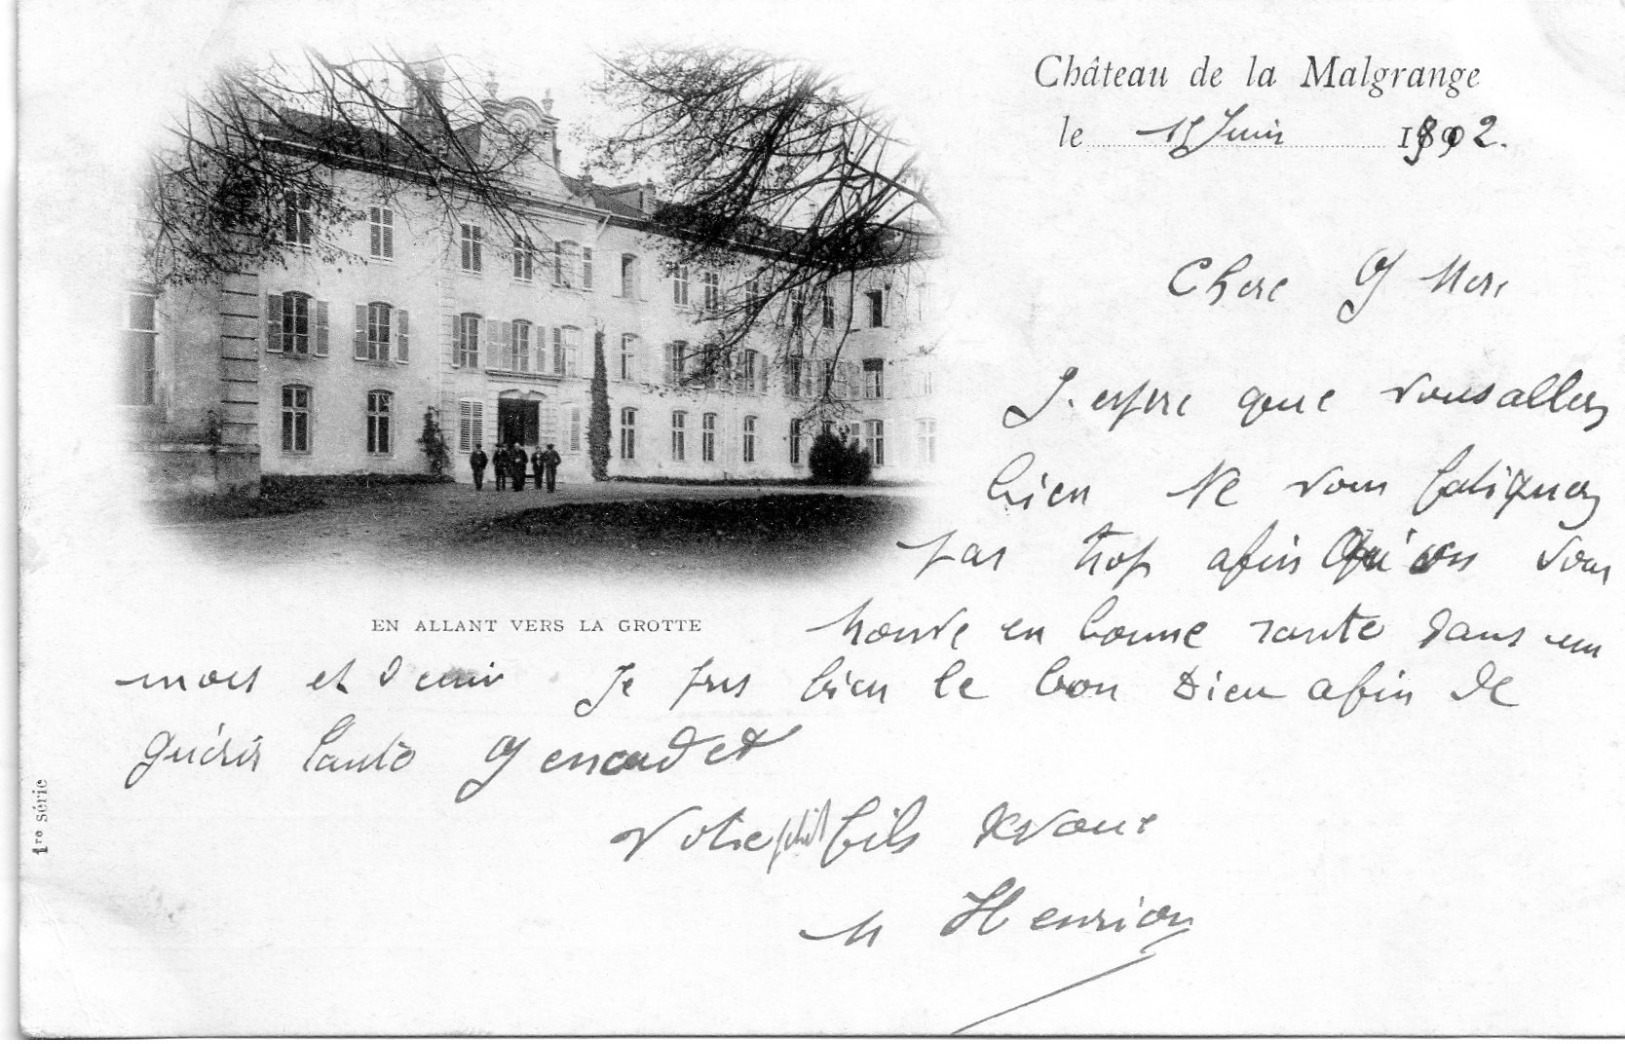 Château de la Malgrange
le 15 Juin 1902.
Chere G Mere
J'espere que vous allez
bien Ne vous fatiguez
pas trop afin qu'on vous
trouve en bonne santé dans un
EN ALLANT VERS LA GROTTE
mois et demi Je prie bien le bon Dieu afin de
guérir Tante
Votre petit fils devoue
M Henrion
1re série